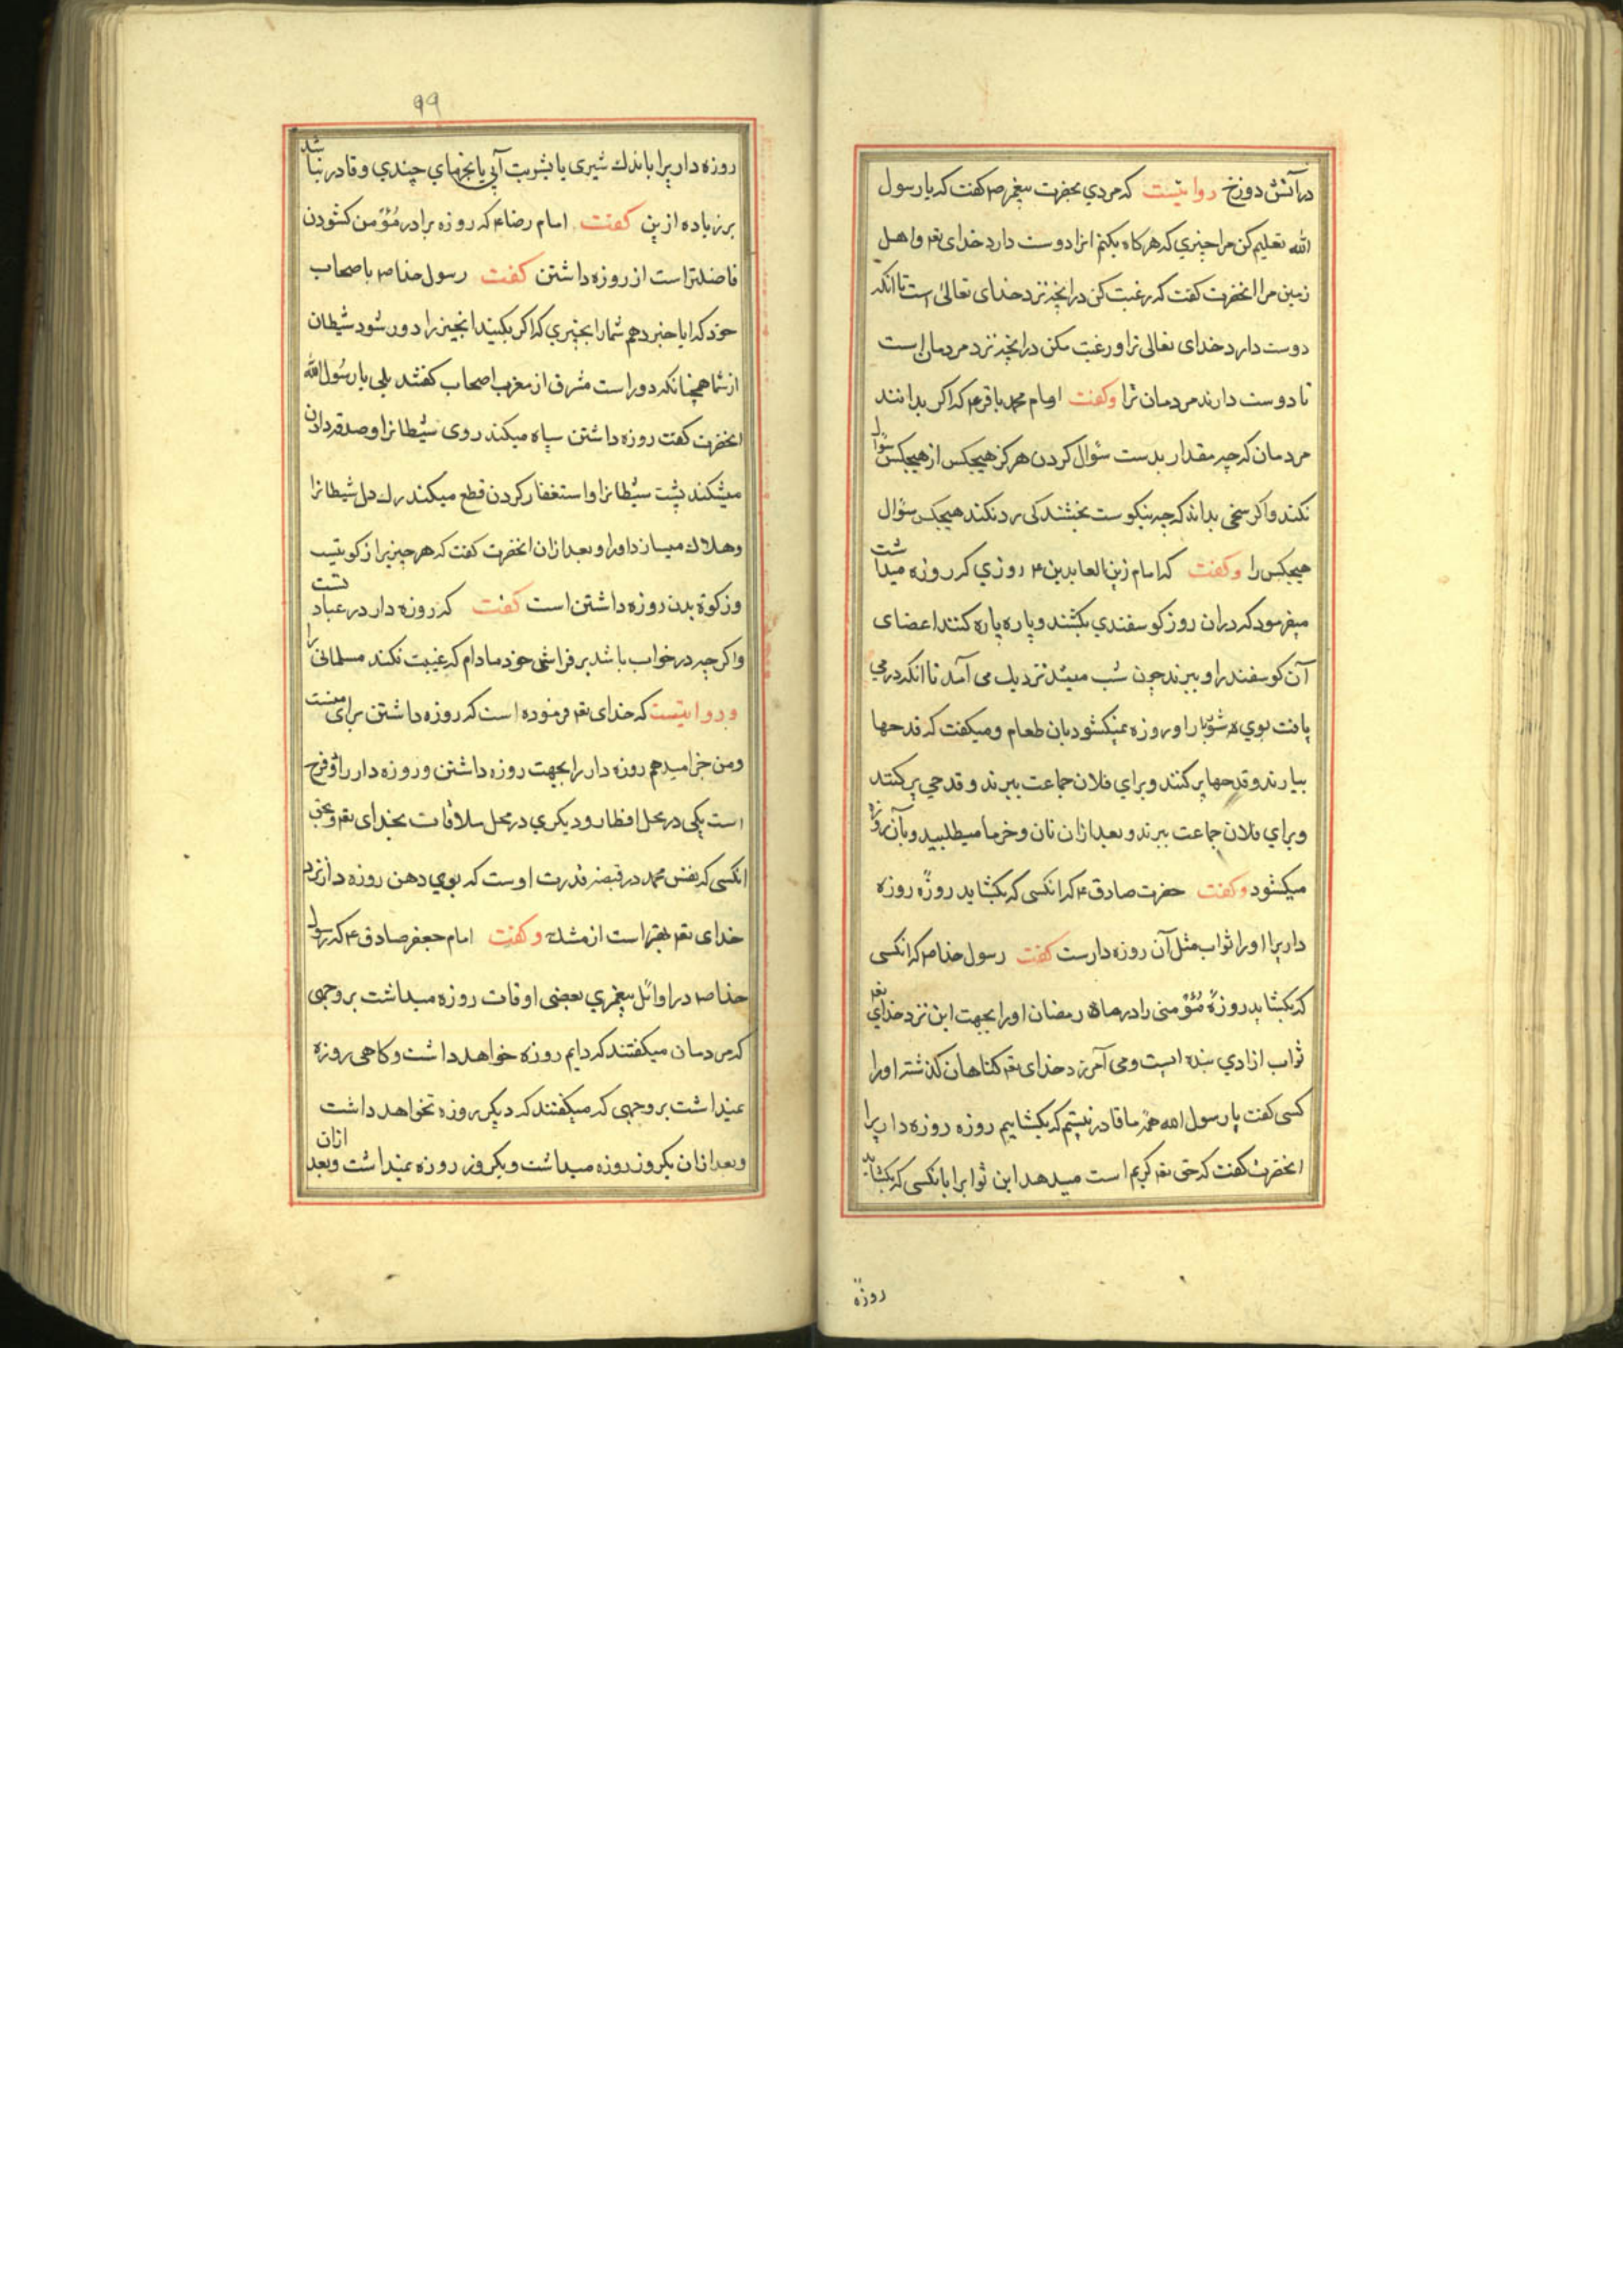 در آتش دوزخ روایتست که مردی بحضرت پیغمبر ص گفت که یا رسول
الله تعلیم کن مرا چیزی که هرکاه بکنم انرا دوست دارد خدای تعم و اهل
زمین مرا انحضرت کفت که رغبت کن در انچه نزد خدای تعالی است تا انکه
دوست دارد خدای تعالی ترا و رغبت مکن در انچه نزد مردمان است
تا دوست دارند مردمان ترا و کفت امام محمد باقر ع که اکر بدانند
مردمان که چه مقدار بدست سؤال کردن هرکز هیچکس از هیچکس سؤال
نکند و اکر سخی بداند که چه نیکوست بخشندکی رد نکند هیچکس سؤال
هیچکس را و کفت که امام زین العابدین ع روزی که روزه میداشت
میفرمود که دران روز کوسفندی بکشند و پاره پاره کنند اعضای
آن کوسفند را و بپزند چون شب میشد نزدیک می آمد تا انکه در می
یافت بوی شوربا را و روزه نمیکشود بان طعام و میکفت که قدحها
بیارند و قدحها پر کنند و برای فلان جماعت ببرند و قدحی پر کنند
و برای فلان جماعت ببرند و بعد ازان نان و خرما میطلبید و بآن روزه
میکشود و کفت حضرت صادق ع که انکسی که بکشاید روزهٔ روزه
داریرا او را ثواب مثل آن روزه دارست کفت رسول خدا ص که انکسی
که بکشاید روزهٔ مؤمنی را در ماه رمضان او را بجهت این نزد خدای تعم
ثواب ازادی بنده ایست و می آمرزد خدای تعم کناهان کذشته او را
کسی کفت یا رسول الله همهٔ ما قادر نیستیم که بکشاییم روزه روزه داریرا
انحضرت کفت که حق تعم کریم است میدهد این ثوابرا بانکسی که بکشاید
روزهٔ
۹۹
روزه داریرا باندک شیری یا بشربت آبی یا بخرمای چندی و قادر نباشد
بر زیاده ازین کفت امام رضا ع که روزه برادر مؤمن کشودن
فاضلتر است از روزه داشتن کفت رسول خدا ص باصحاب
خود که ایا خبر دهم شما را بچیزی که اکر بکنید انچیز را دور شود شیطان
از شما همچنانکه دور است مشرق از مغرب اصحاب کفتند بلی یا رسول الله
انحضرت کفت روزه داشتن سیاه میکند روی شیطانرا و صدقه دادن
میشکند پشت شیطانرا و استغفار کردن قطع میکند رک دل شیطانرا
و هلاک میسازد او را و بعد ازان انحضرت کفت که هر چیزیرا زکوتیست
و زکوة بدن روزه داشتن است کفت که روزه دار در عبادتست
و اکر چه در خواب باشد بر فراش خود مادام که غیبت نکند مسلمانی را
و روایتست که خدای تعم فرموده است که روزه داشتن برای منست
و من جزا میدهم روزه دار را بجهت روزه داشتن و روزه دار را دو فرح
است یکی در محل افطار و دیکری در محل ملاقات بخدای تعم و بحق
انکسی که نفس محمد در قبضه قدرت اوست که بوی دهن روزه دار نزد
خدای تعم بهتر است از مشک و کفت امام جعفر صادق ع که رسول
خدا ص در اوائل پیغمبری بعضی اوقات روزه میداشت بر وجهی
که مردمان میکفتند که دایم روزه خواهد داشت و کاهی روزه
نمیداشت بر وجهی که میکفتند که دیکر روزه نخواهد داشت
و بعد ازان یکروز روزه میداشت و یکروز روزه نمیداشت و بعد ازان